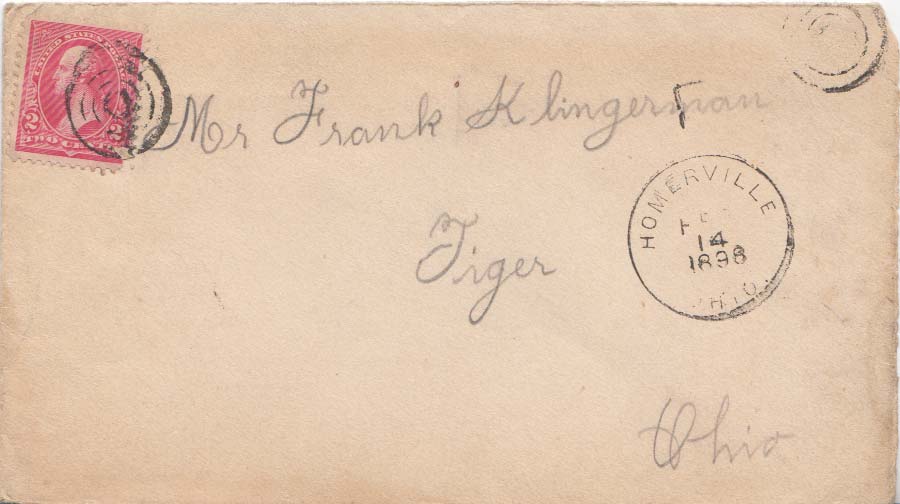 UNITED STATES POSTAGE
2 2
TWO CENTS
Mr Frank Klingerman
HOMERVILLE
FEB
14
1898
OHIO.
Tiger
Ohio